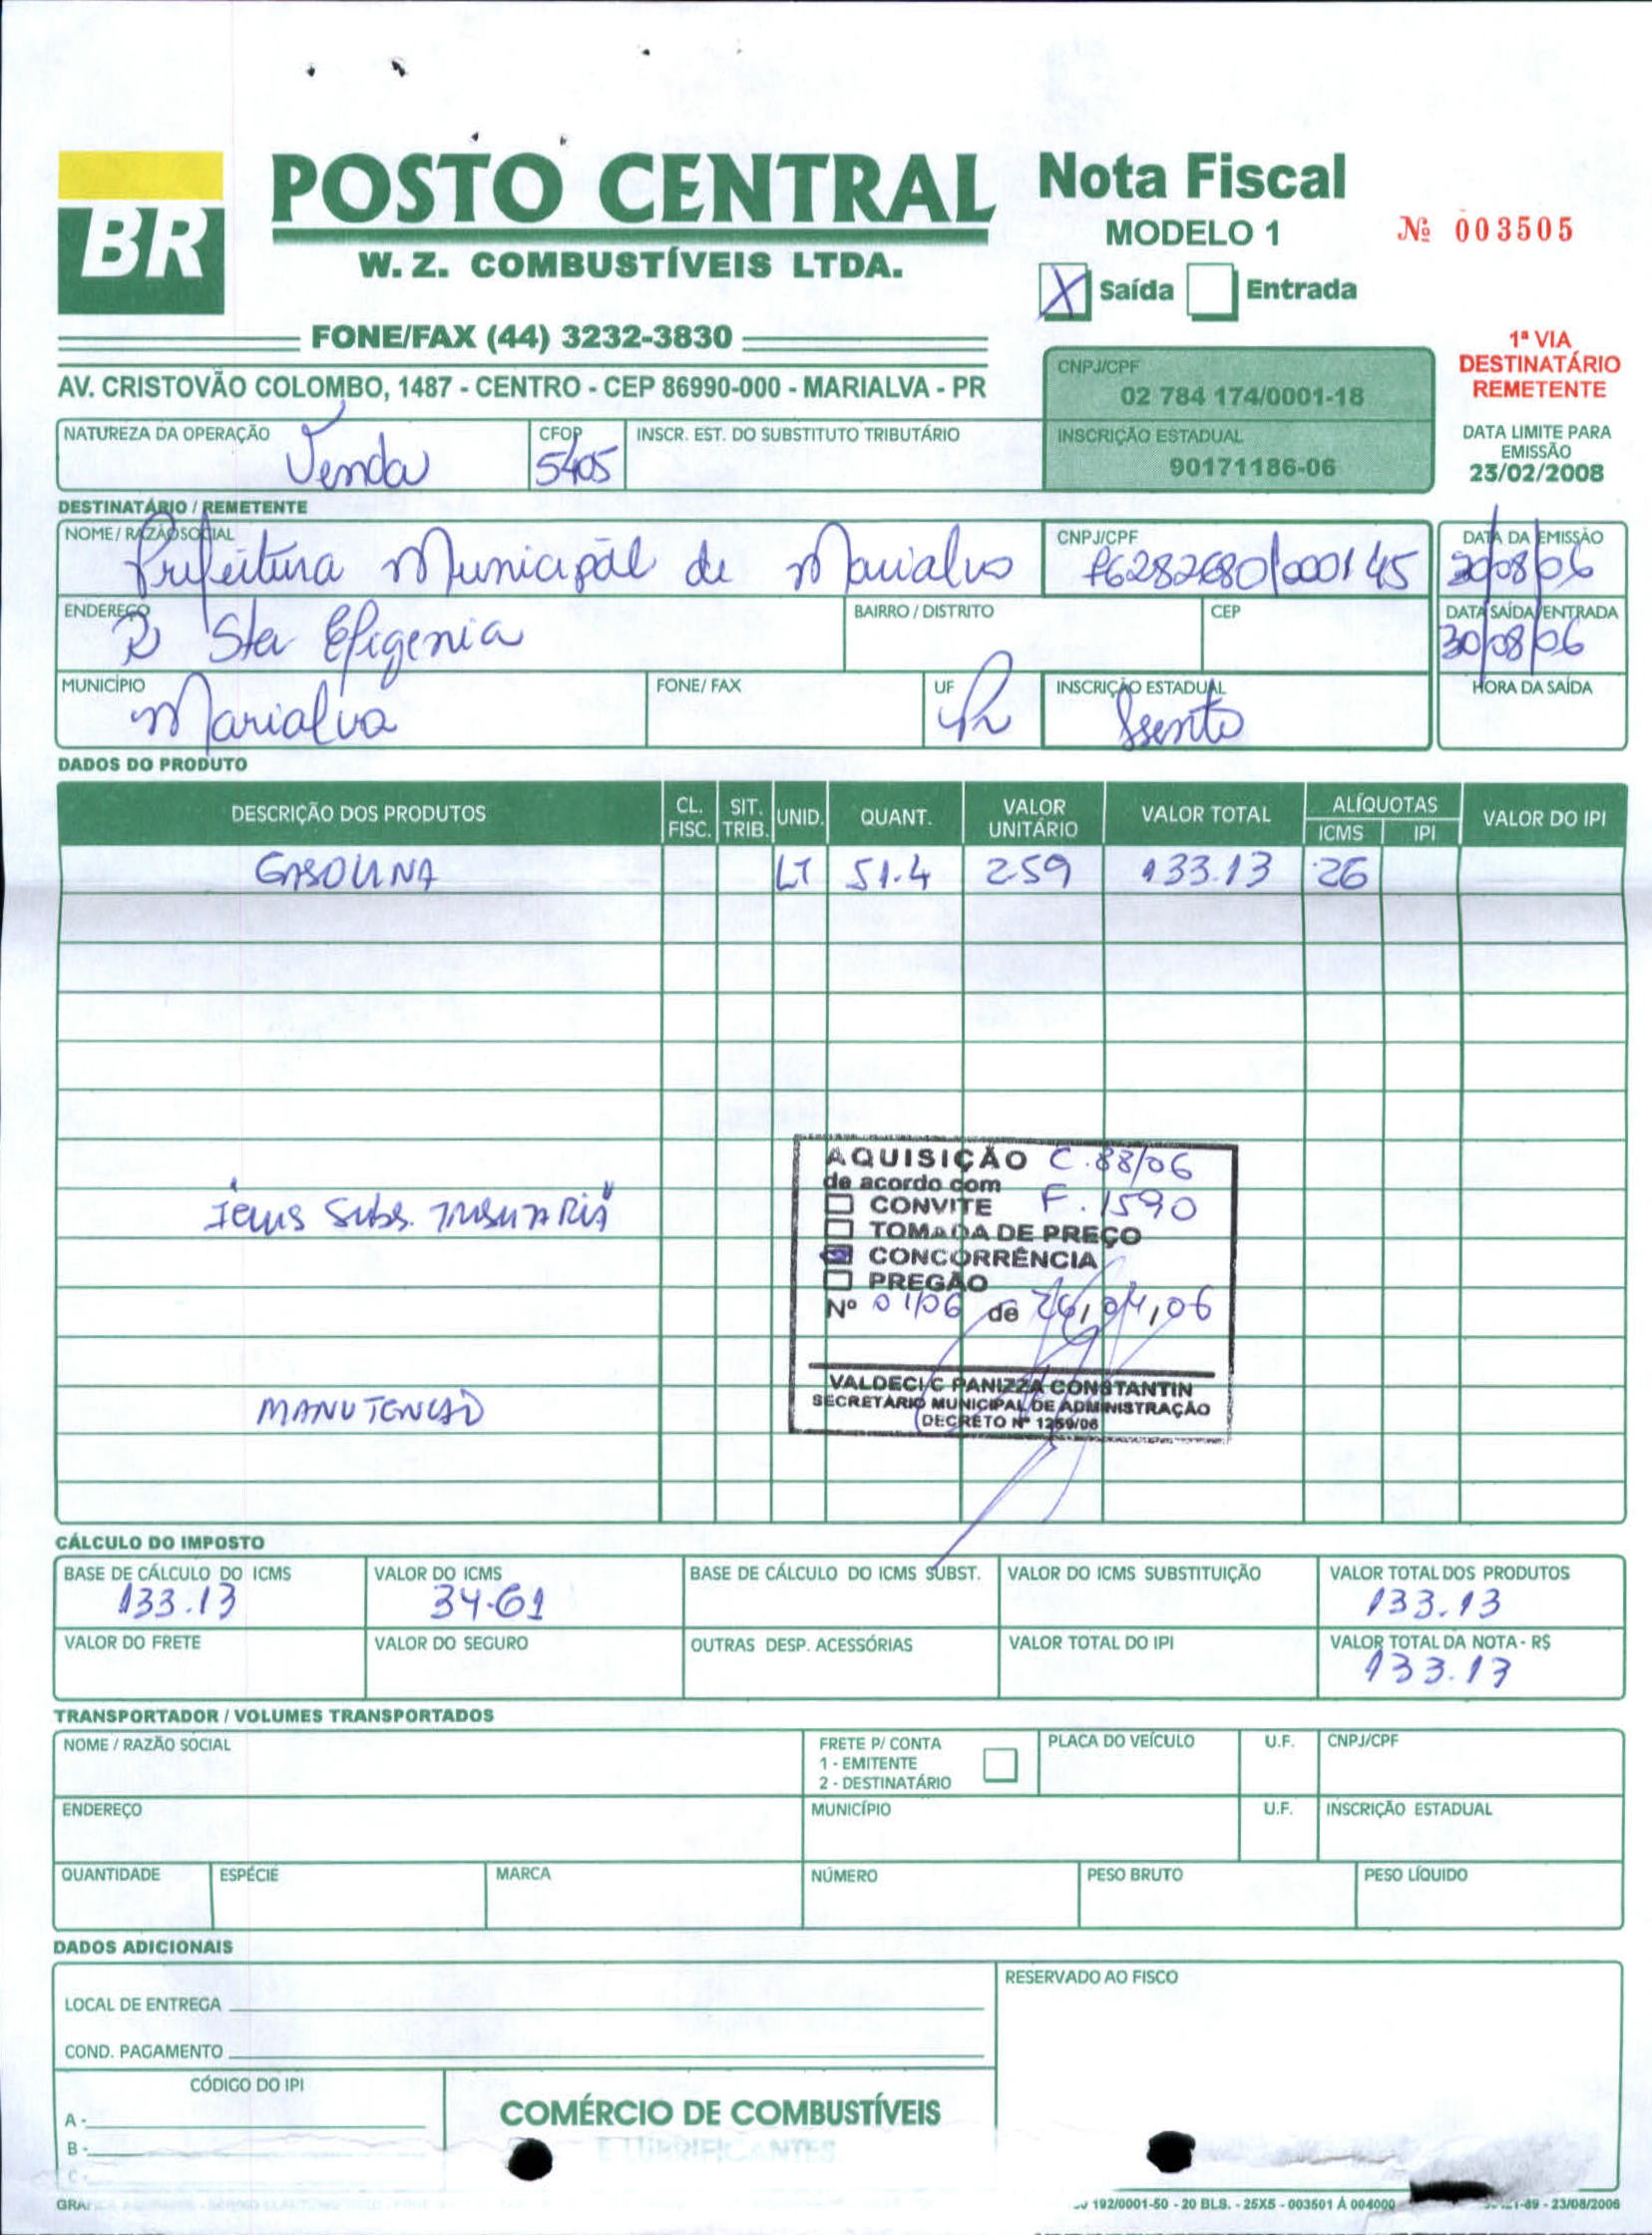 BR
POSTO CENTRAL
W. Z. COMBUSTÍVEIS LTDA.
FONE/FAX (44) 3232-3830
AV. CRISTOVÃO COLOMBO, 1487 - CENTRO - CEP 86990-000 - MARIALVA - PR
Nota Fiscal
MODELO 1
Nº 003505
X Saída Entrada
1ª VIA
DESTINATÁRIO
REMETENTE
CNPJ/CPF
02 784 174/0001-18
INSCRIÇÃO ESTADUAL
90171186-06
DATA LIMITE PARA
EMISSÃO
23/02/2008
NATUREZA DA OPERAÇÃO Venda
CFOP 5405
INSCR. EST. DO SUBSTITUTO TRIBUTÁRIO
DESTINATÁRIO / REMETENTE
NOME / RAZÃO SOCIAL Prefeitura Municipal de Marialva
CNPJ/CPF 76282680/000145
DATA DA EMISSÃO 30/08/06
ENDEREÇO R Sta Efigenia
BAIRRO / DISTRITO
CEP
DATA SAÍDA/ENTRADA 30/08/06
MUNICÍPIO Marialva
FONE/ FAX
UF Pr
INSCRIÇÃO ESTADUAL Isento
HORA DA SAÍDA
DADOS DO PRODUTO
DESCRIÇÃO DOS PRODUTOS CL. FISC. SIT. TRIB. UNID. QUANT. VALOR UNITÁRIO VALOR TOTAL ALÍQUOTAS ICMS IPI VALOR DO IPI
GASOLINA LT 51.4 259 133.13 26
AQUISIÇÃO C.88/06
de acordo com
CONVITE F.1590
TOMADA DE PREÇO
CONCORRÊNCIA
PREGÃO
Nº 01/06 de 26,04,06
VALDECI C PANIZZA CONSTANTIN
SECRETÁRIO MUNICIPAL DE ADMINISTRAÇÃO
DECRETO Nº 1269/06
"Icms Subs. TRIBUTARIA"
MANUTENCAO
CÁLCULO DO IMPOSTO
BASE DE CÁLCULO DO ICMS 133.13
VALOR DO ICMS 34.61
BASE DE CÁLCULO DO ICMS SUBST.
VALOR DO ICMS SUBSTITUIÇÃO
VALOR TOTAL DOS PRODUTOS 133.13
VALOR DO FRETE
VALOR DO SEGURO
OUTRAS DESP. ACESSÓRIAS
VALOR TOTAL DO IPI
VALOR TOTAL DA NOTA - R$ 133.13
TRANSPORTADOR / VOLUMES TRANSPORTADOS
NOME / RAZÃO SOCIAL
FRETE P/ CONTA
1 - EMITENTE
2 - DESTINATÁRIO
PLACA DO VEÍCULO
U.F.
CNPJ/CPF
ENDEREÇO
MUNICÍPIO
U.F.
INSCRIÇÃO ESTADUAL
QUANTIDADE
ESPÉCIE
MARCA
NÚMERO
PESO BRUTO
PESO LÍQUIDO
DADOS ADICIONAIS
LOCAL DE ENTREGA
COND. PAGAMENTO
RESERVADO AO FISCO
CÓDIGO DO IPI
A -
B -
C -
COMÉRCIO DE COMBUSTÍVEIS
E LUBRIFICANTES
192/0001-50 - 20 BLS. - 25X5 - 003501 À 004000
-89 - 23/08/2006